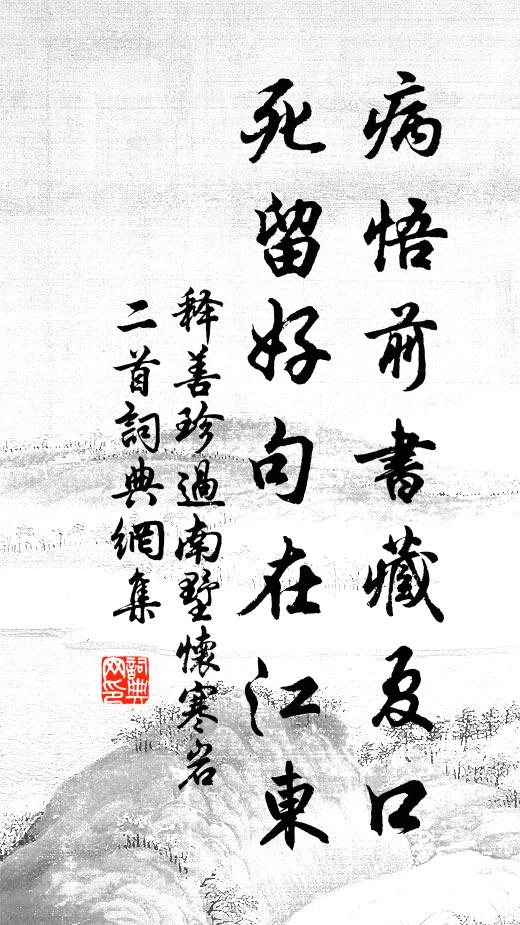 病悟前書藏夏口
死留好句在江東
释善珍過南墅懷寒岩
二首詞典網集
詞典
网印